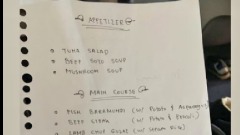 APPETIZER
TUNA SALAD
BEEF SOTO SOUP
MUSHROOM SOUP
MAIN COURSE
FISH BARRAMUNDI (w/ Potato & Asparagus)
BEEF STEAK (w/ Potato &
LAMB CHOP